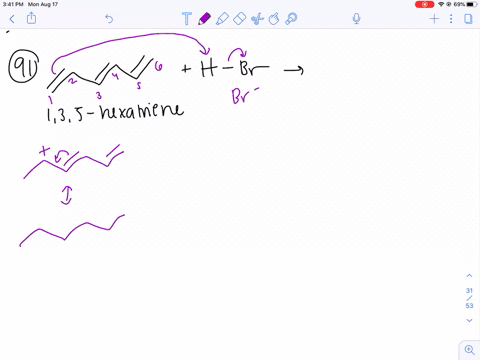 3:41 PM Mon Aug 17
69%
T
91
+ H - Br →
1 2 3 4 5 6
Br -
1,3,5-hexatriene
+
31
/
53